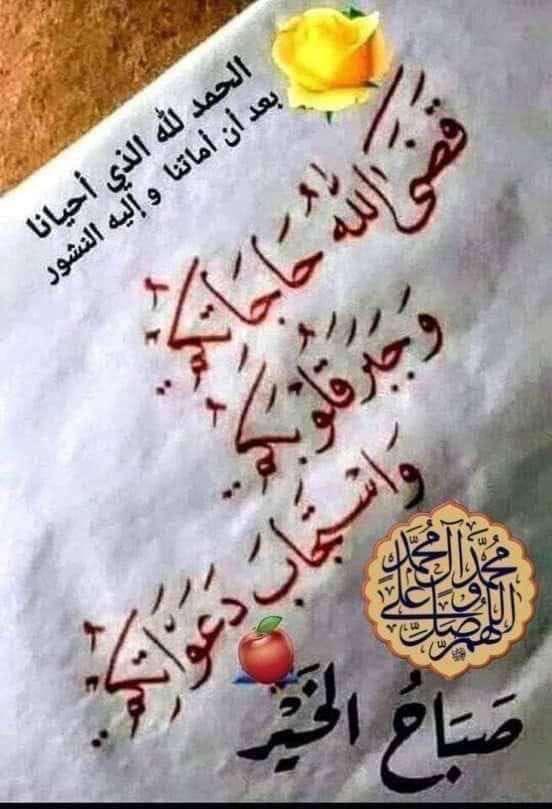 الحمد لله الذي أحيانا
بعد أن أماتنا و إليه النشور
قَضَى اللهُ حَاجَاتِكُمْ..
وَجَبَرَ قُلُوبَكُمْ..
وَاسْتَجَابَ دَعَوَاتِكُمْ..
اللهم صل على محمد وآل محمد
صَبَاحُ الخَيْر